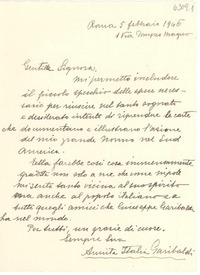 6309.1
Roma 5 febbraio 1946
Gentile Signora,
Mi permetto includere
il piccolo specchio delle spese neces-
sarie per riuscire nel tanto sognato
e desiderato intento di riprendere le carte
che documentano e illustrano l'azione
del mio grande Nonno nel Sud
America.
Ella farebbe così cosa immensamente
gradita non solo a me che come nipote
mi sento tanto vicina al suo spirito
ma anche al popolo italiano e a
tutti quegli amici che Giuseppe Garibaldi
ha nel mondo.
Per tutti, un grazie di cuore.
Sempre Sua
Annita Italia Garibaldi